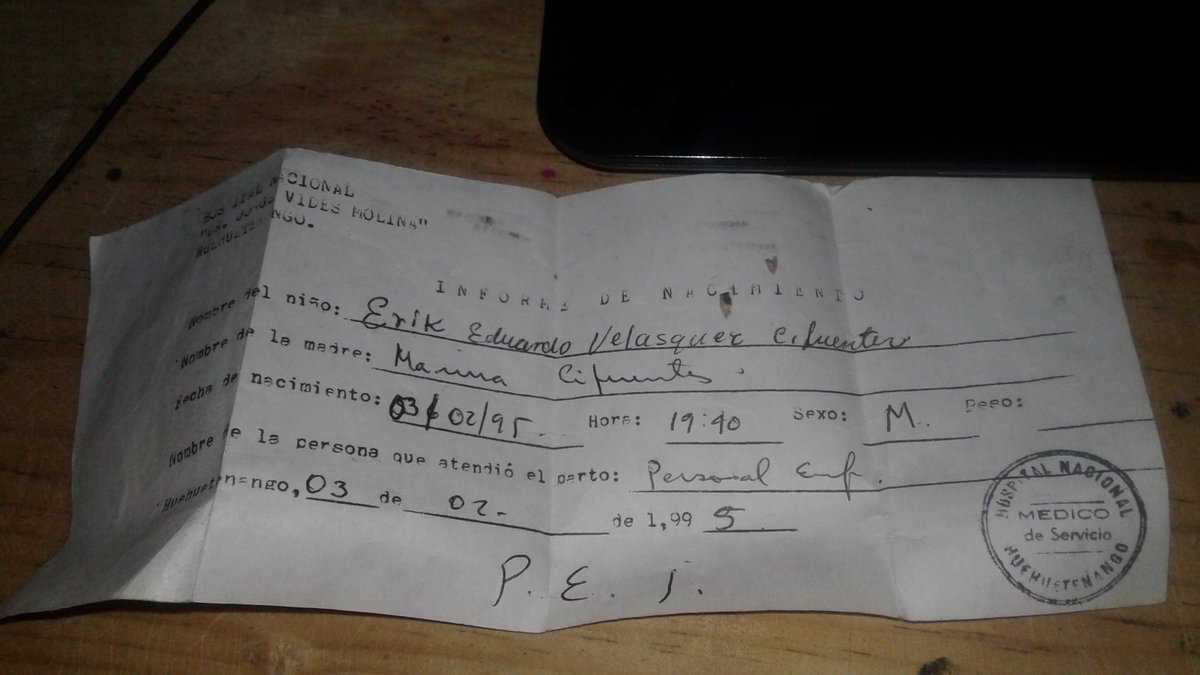 HOSPITAL NACIONAL
"DR. JORGE VIDES MOLINA"
HUEHUETENANGO.
INFORME DE NACIMIENTO
Nombre del niño: Erik Eduardo Velasquez Cifuentes
Nombre de la madre: Marina Cifuentes.
Fecha de nacimiento: 03/02/95. Hora: 19:40 Sexo: M. Peso:
Nombre de la persona que atendió el parto: Personal Enf.
Huehuetenango, 03 de 02- de 1,99 5
P. E. I.
HOSPITAL NACIONAL
MEDICO
de Servicio
HUEHUETENANGO